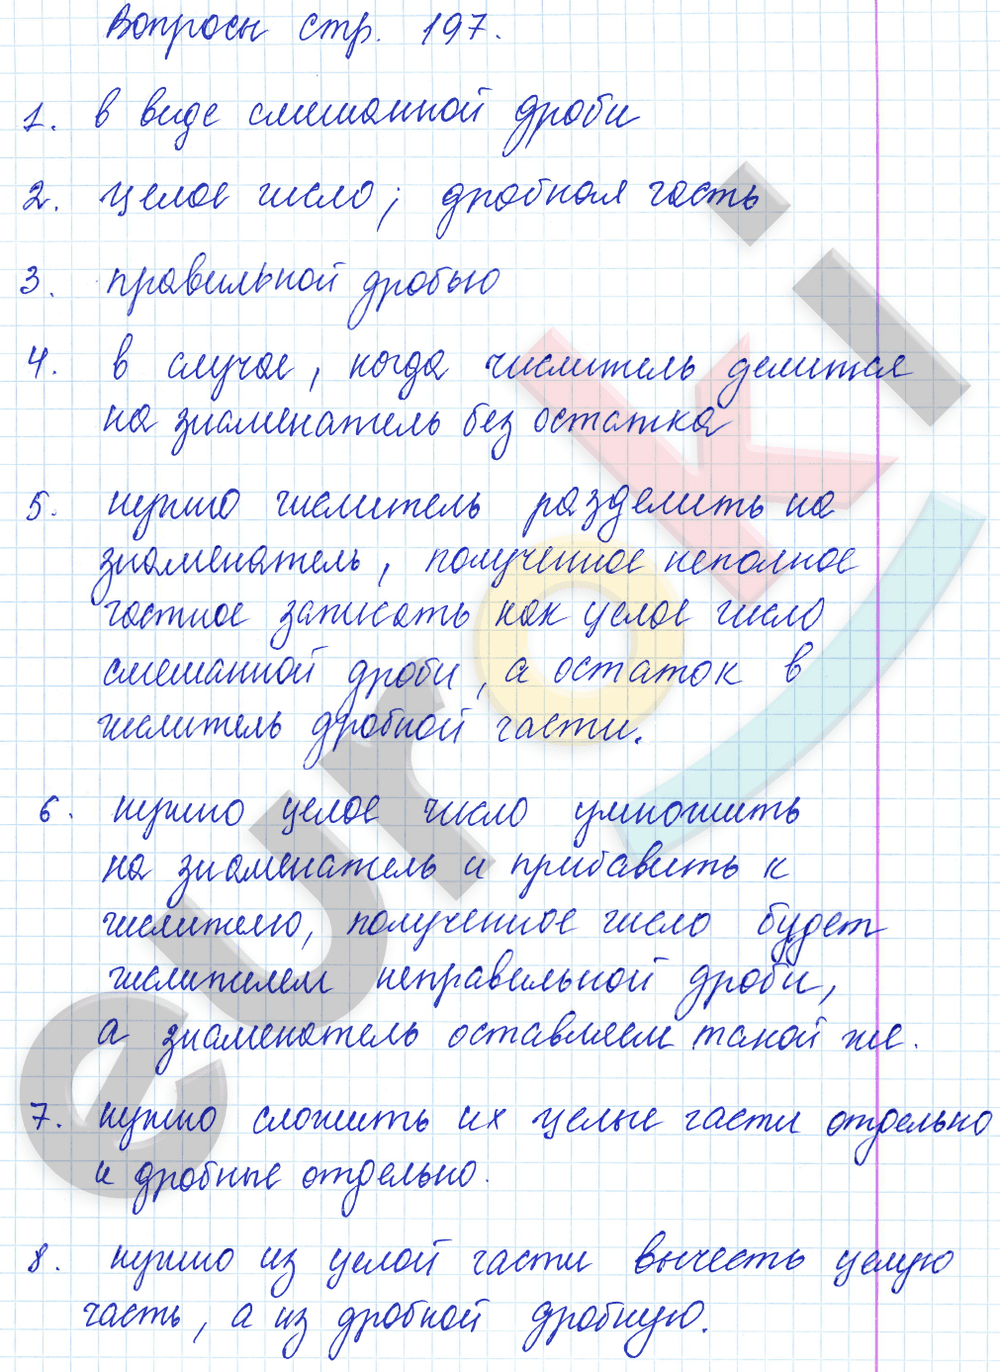 Вопросы стр. 197.
1. в виде смешанной дроби
2. целое число; дробная часть
3. правильной дробью
4. в случае, когда числитель делится
на знаменатель без остатка
5. нужно числитель разделить на
знаменатель, полученное неполное
частное записать как целое число
смешанной дроби, а остаток в
числитель дробной части.
6. нужно целое число умножить
на знаменатель и прибавить к
числителю, полученное число будет
числителем неправильной дроби,
а знаменатель оставляем такой же.
7. нужно сложить их целые части отдельно
и дробные отдельно.
8. нужно из целой части вычесть целую
часть, а из дробной дробную.
euroki